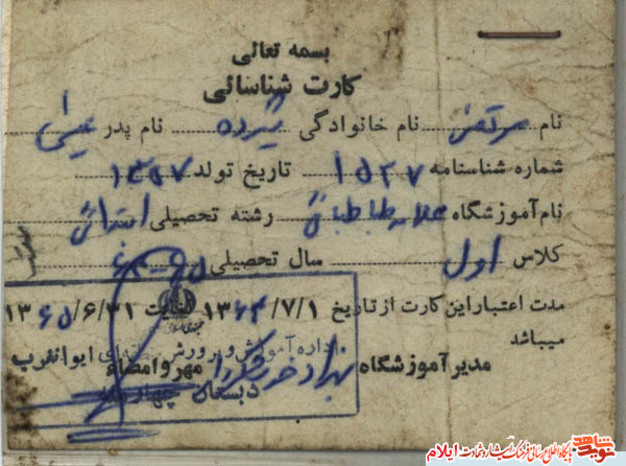 بسمه تعالی
کارت شناسائی
نام مرتضی نام خانوادگی نام پدر عیسی
شماره شناسنامه ۱۵۲۷ تاریخ تولد ۱۳۵۷
نام آموزشگاه علامه طباطبائی رشته تحصیلی ابتدائی
کلاس اول سال تحصیلی
مدت اعتبار این کارت از تاریخ ۱۳۶۴/۷/۱ لغایت ۱۳۶۵/۶/۳۱
میباشد
مدیر آموزشگاه مهر و امضاء
اداره آموزش و پرورش ایوانغرب
دبستان
نوید شاهد پایگاه اطلاع رسانی فرهنگ ایثار و شهادت ایلام